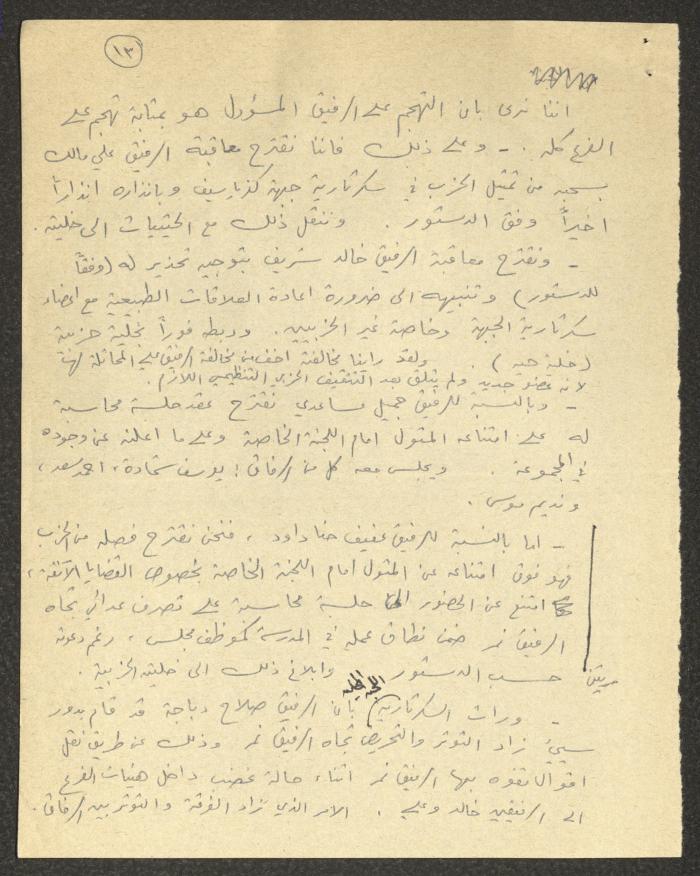 ١٣
اننا نرى بان التهجم على الرفيق المسؤول هو بمثابة تهجم على
الفرع كله . - وعلى ذلك فاننا نقترح معاقبة الرفيق علي مالك
بسحبه من تمثيل الحزب في سكرتارية جبهة كفرياسيف وبانذاره انذاراً
اخيراً وفق الدستور . وننقل ذلك مع الحيثيات الى خليته .
- ونقترح معاقبة الرفيق خالد شريف بتوجيه تحذير له (وفقاً
للدستور) وتنبيهه الى ضرورة اعادة العلاقات الطبيعية مع اعضاء
سكرتارية الجبهة وخاصة غير الحزبيين . وربطه فوراً بخلية حزبية
(خلية حيه) . ولقد رأينا مخالفته اخف من مخالفة الرفيق علي المماثلة لهذا
لانه عضو جديد ولم يتلق بعد التثقيف الحزبي التنظيمي اللازم .
- وبالنسبة للرفيق جميل مساعدي نقترح عقد جلسة محاسبة
له على امتناعه المثول امام اللجنة الخاصة وعلى ما اعلنه عن وجوده
في المجموعة . ويجلس معه كل من الرفاق : يوسف شحادة ، احمد سعد ،
ونديم موسى .
- اما بالنسبة للرفيق عفيف حنا داود ، فنحن نقترح فصله من الحزب
فهو فوق امتناعه عن المثول امام اللجنة الخاصة بخصوص القضايا الآنفة ،
امتنع عن الحضور الى جلسة محاسبة على تصرف عدائي تجاه
الرفيق نمر ضمن نطاق عمله في المدرسة كموظف مجلس ، رغم دعوته
مرتين حسب الدستور وابلاغ ذلك الى خليته الحزبية .
- ورأت السكرتارية بان الرفيق صلاح دباجة قد قام بدور
سيئ زاد التوتر والتحريض تجاه الرفيق نمر وذلك عن طريق نقل
اقوال تفوه بها الرفيق نمر اثناء حالة غضب داخل هيئات الفرع
الى الرفيقين خالد وعلي . الامر الذي زاد الفرقة والتوتر بين الرفاق .